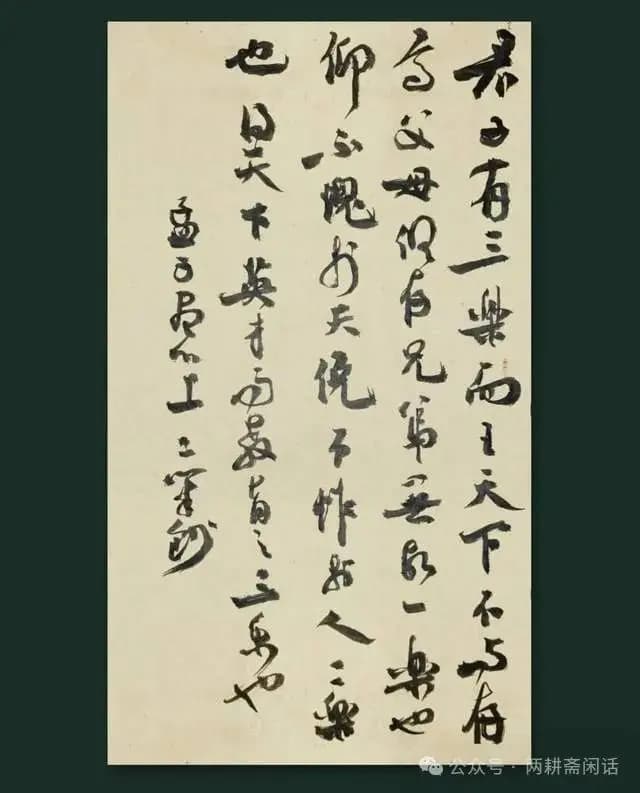 君子有三樂而王天下不与存
焉父母俱存兄弟無故一樂也
仰不愧於天俛不怍於人二樂
也得天下英才而教育之三乐也
孟子尽心上
公众号 · 两耕斋闲话